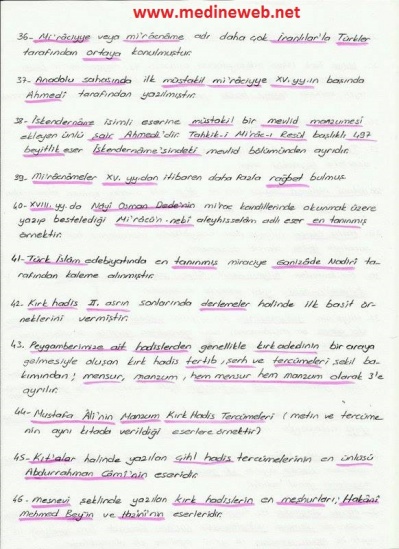 www.medineweb.net
36- Mi'râciyye veya mi'râcnâme adı daha çok İranlılar'la Türkler
tarafından ortaya konulmuştur.
37- Anadolu sahasında ilk müstakil mi'râciyye XV. yy.ın başında
Ahmedî tarafından yazılmıştır.
38- İskendernâme isimli eserine müstakil bir mevlid manzumesi
ekleyen ünlü şair Ahmedî'dir. Tahkik-i Mi'râc-ı Resûl başlıklı 497
beyitlik eser İskendernâme'sindeki mevlid bölümünden ayrıdır.
39- Mi'râcnâmeler XV. yy.dan itibaren daha fazla rağbet bulmuş.
40- XVIII. yy.da Nâyî Osman Dede'nin mi'rac kandillerinde okunmak üzere
yazıp bestelediği Mi'râcü'n-nebî aleyhisselâm adlı eser en tanınmış
örnektir.
41- Türk İslâm edebiyatında en tanınmış miraciye Ganizâde Nadirî ta-
rafından kaleme alınmıştır.
42- Kırk hadis II. asrın sonlarında derlemeler halinde ilk basit ör-
neklerini vermiştir.
43- Peygamberimize ait hadislerden genellikle kırk adedinin bir araya
gelmesiyle oluşan kırk hadis tertib, şerh ve tercümeleri şekil ba-
kımından; mensur, manzum, hem mensur hem manzum olarak 3'e
ayrılır.
44- Mustafa Âli'nin Manzum Kırk Hadis Tercümeleri (metin ve tercüme
nin aynı kitada verildiği eserlere örnektir)
45- Kıt'alar halinde yazılan Çihl hadis tercümelerinin en ünlüsü
Abdurrahman Câmi'nin eseridir.
46- mesnevi şeklinde yazılan kırk hadislerin en meşhurları; Hakânî
Mehmed Bey'in ve Hazînî'nin eserleridir.